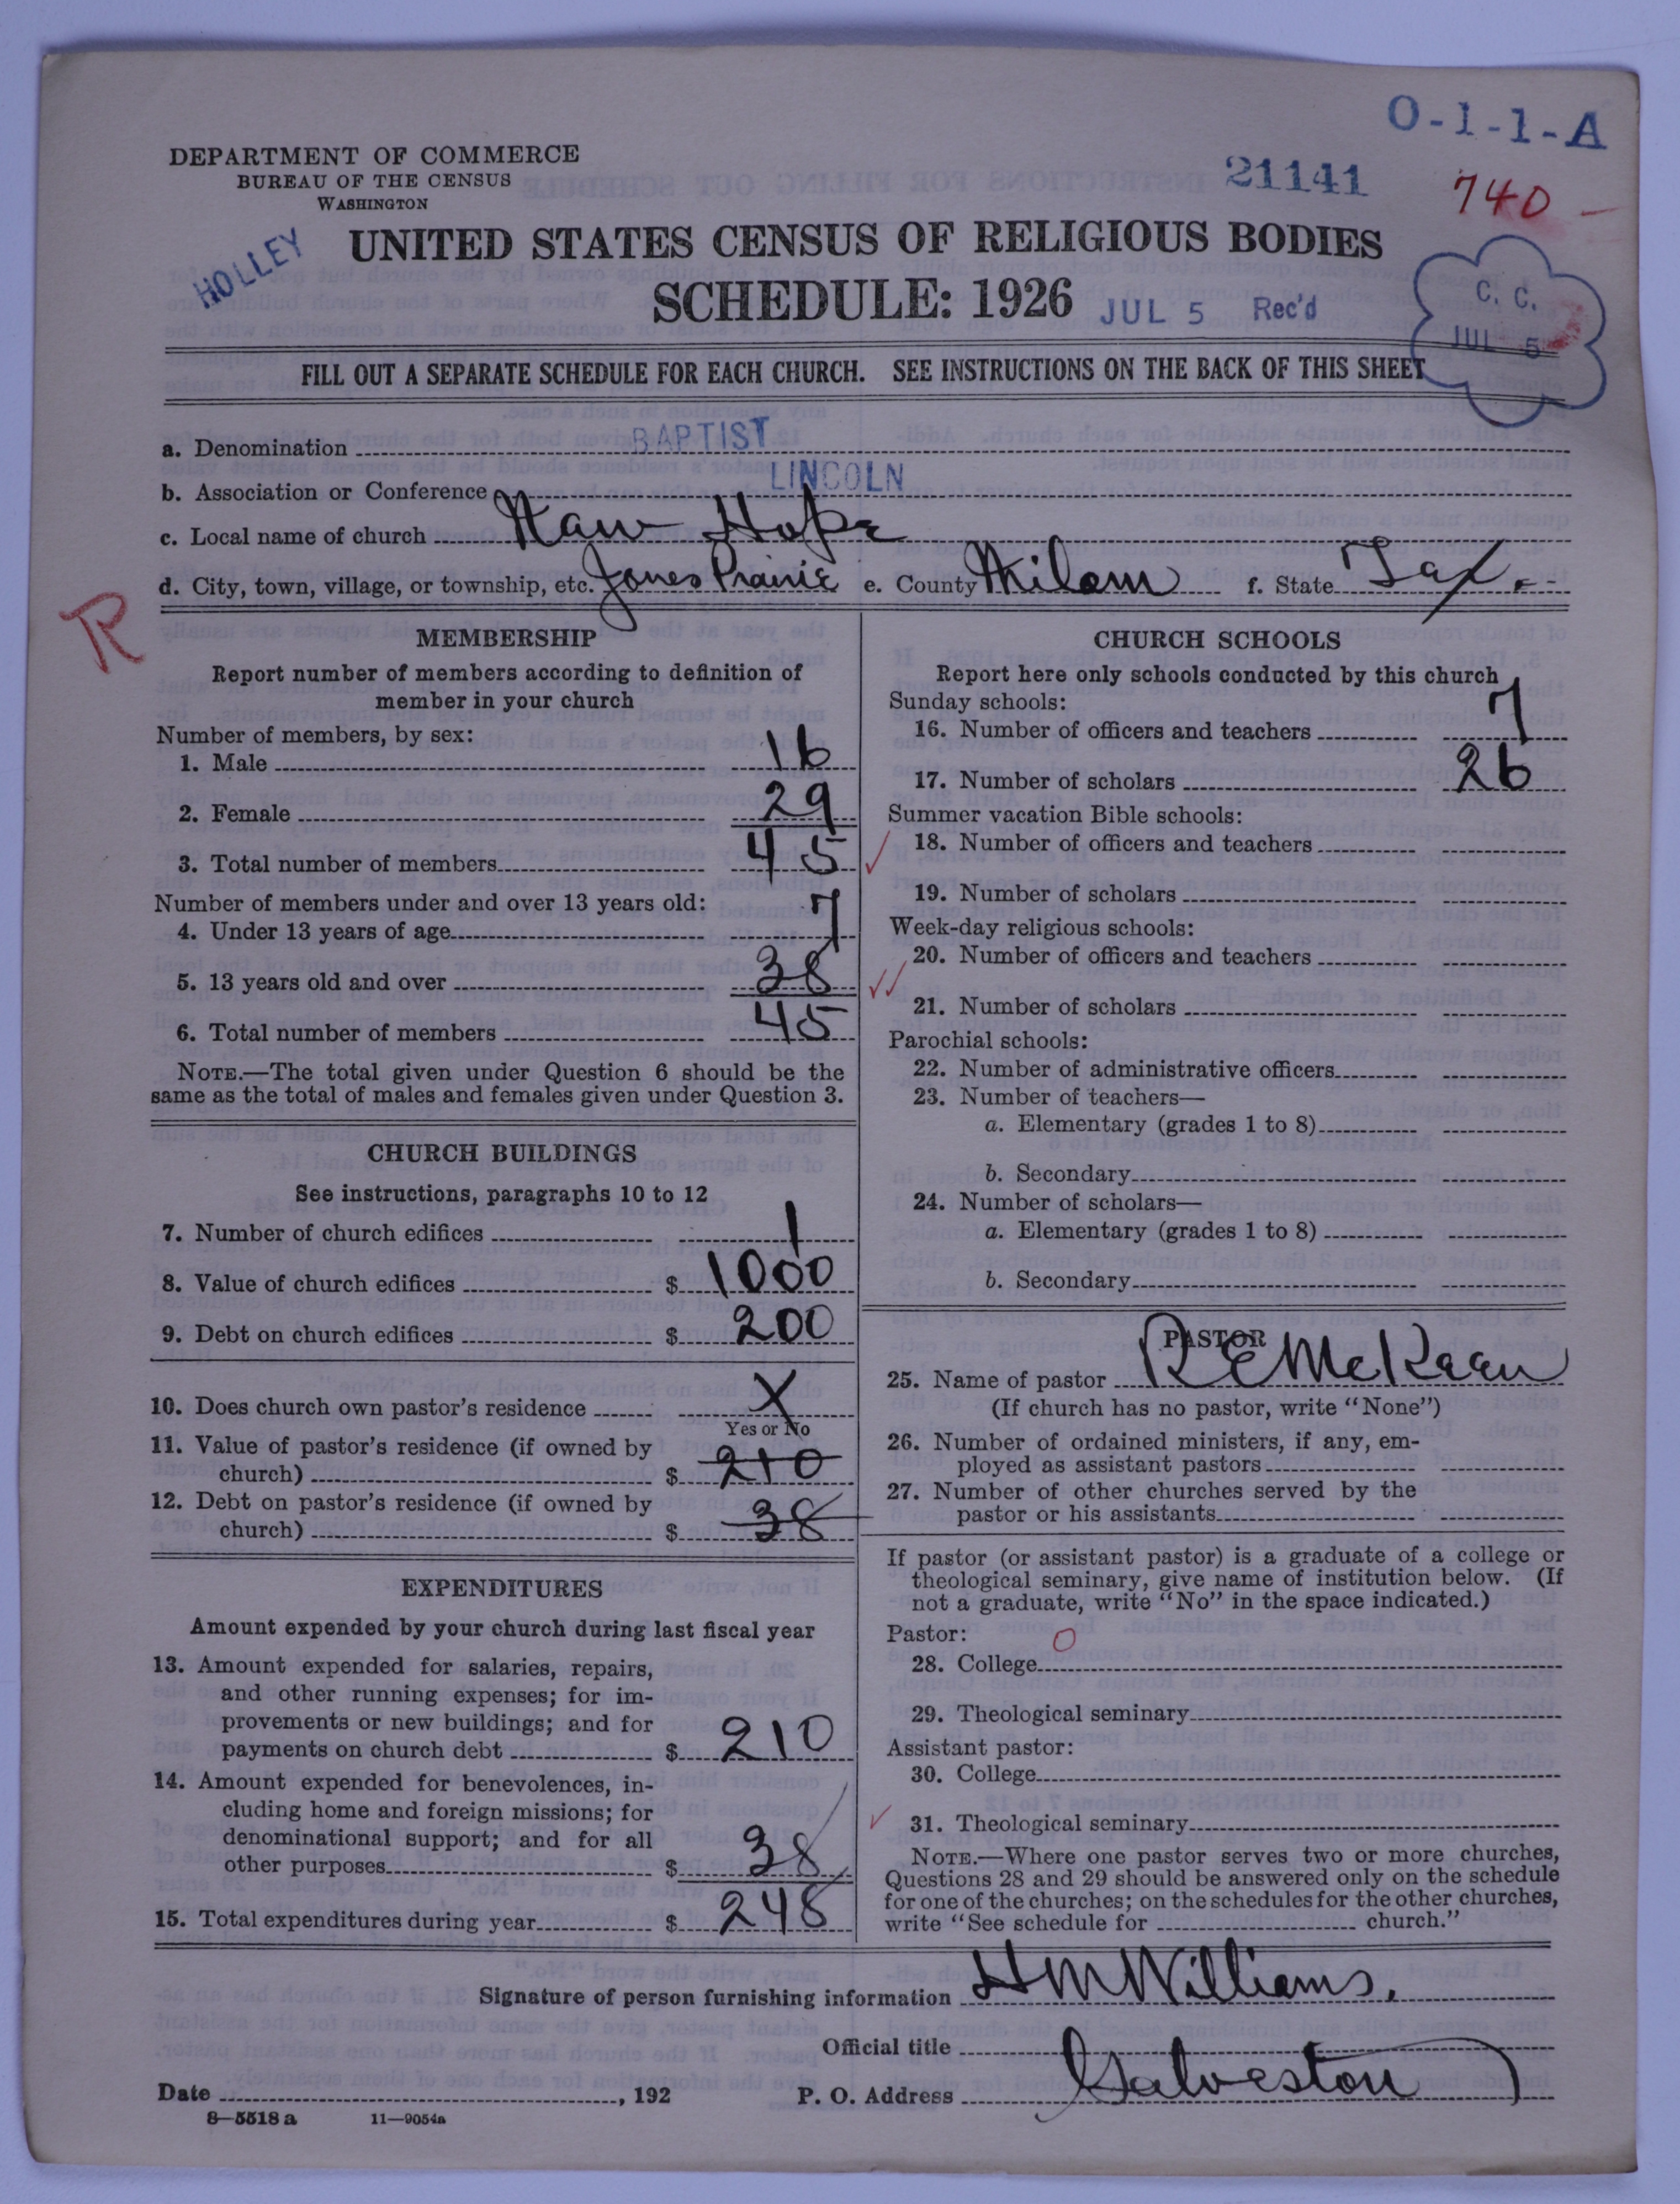 O-1-1-A
DEPARTMENT OF COMMERCE
BUREAU OF THE CENSUS
WASHINGTON
21141
740
HOLLEY
UNITED STATES CENSUS OF RELIGIOUS BODIES
SCHEDULE: 1926
JUL 5 Rec'd
C. C.
JUL 5
FILL OUT A SEPARATE SCHEDULE FOR EACH CHURCH. SEE INSTRUCTIONS ON THE BACK OF THIS SHEET
a. Denomination BAPTIST
b. Association or Conference LINCOLN
c. Local name of church New Hope
d. City, town, village, or township, etc. Jones Prairie e. County Milam f. State Tex.
R
MEMBERSHIP
Report number of members according to definition of
member in your church
Number of members, by sex:
1. Male 16
2. Female 29
3. Total number of members 45
Number of members under and over 13 years old:
4. Under 13 years of age 7
5. 13 years old and over 38
6. Total number of members 45
NOTE.—The total given under Question 6 should be the
same as the total of males and females given under Question 3.
CHURCH BUILDINGS
See instructions, paragraphs 10 to 12
7. Number of church edifices 1
8. Value of church edifices $ 1000
9. Debt on church edifices $ 200
10. Does church own pastor's residence X
Yes or No
11. Value of pastor's residence (if owned by
church) $ 210
12. Debt on pastor's residence (if owned by
church) $ 38
EXPENDITURES
Amount expended by your church during last fiscal year
13. Amount expended for salaries, repairs,
and other running expenses; for im-
provements or new buildings; and for
payments on church debt $ 210
14. Amount expended for benevolences, in-
cluding home and foreign missions; for
denominational support; and for all
other purposes $ 38
15. Total expenditures during year $ 248
CHURCH SCHOOLS
Report here only schools conducted by this church
Sunday schools:
16. Number of officers and teachers 7
17. Number of scholars 26
Summer vacation Bible schools:
18. Number of officers and teachers
19. Number of scholars
Week-day religious schools:
20. Number of officers and teachers
21. Number of scholars
Parochial schools:
22. Number of administrative officers
23. Number of teachers—
a. Elementary (grades 1 to 8)
b. Secondary
24. Number of scholars—
a. Elementary (grades 1 to 8)
b. Secondary
PASTOR
25. Name of pastor R E McKean
(If church has no pastor, write "None")
26. Number of ordained ministers, if any, em-
ployed as assistant pastors
27. Number of other churches served by the
pastor or his assistants
If pastor (or assistant pastor) is a graduate of a college or
theological seminary, give name of institution below. (If
not a graduate, write "No" in the space indicated.)
Pastor: O
28. College
29. Theological seminary
Assistant pastor:
30. College
31. Theological seminary
NOTE.—Where one pastor serves two or more churches,
Questions 28 and 29 should be answered only on the schedule
for one of the churches; on the schedules for the other churches,
write "See schedule for church."
Signature of person furnishing information H M Williams.
Official title
Date , 192 P. O. Address Galveston
8—5518 a 11—9054a